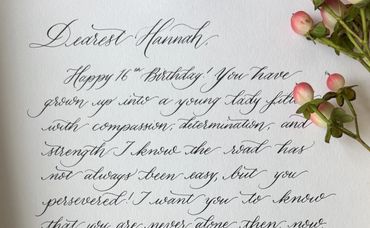 Dearest Hannah,
Happy 16th Birthday! You have
grown up into a young lady filled
with compassion, determination, and
strength. I know the road has
not always been easy, but you
persevered! I want you to know
that you are never alone then, now